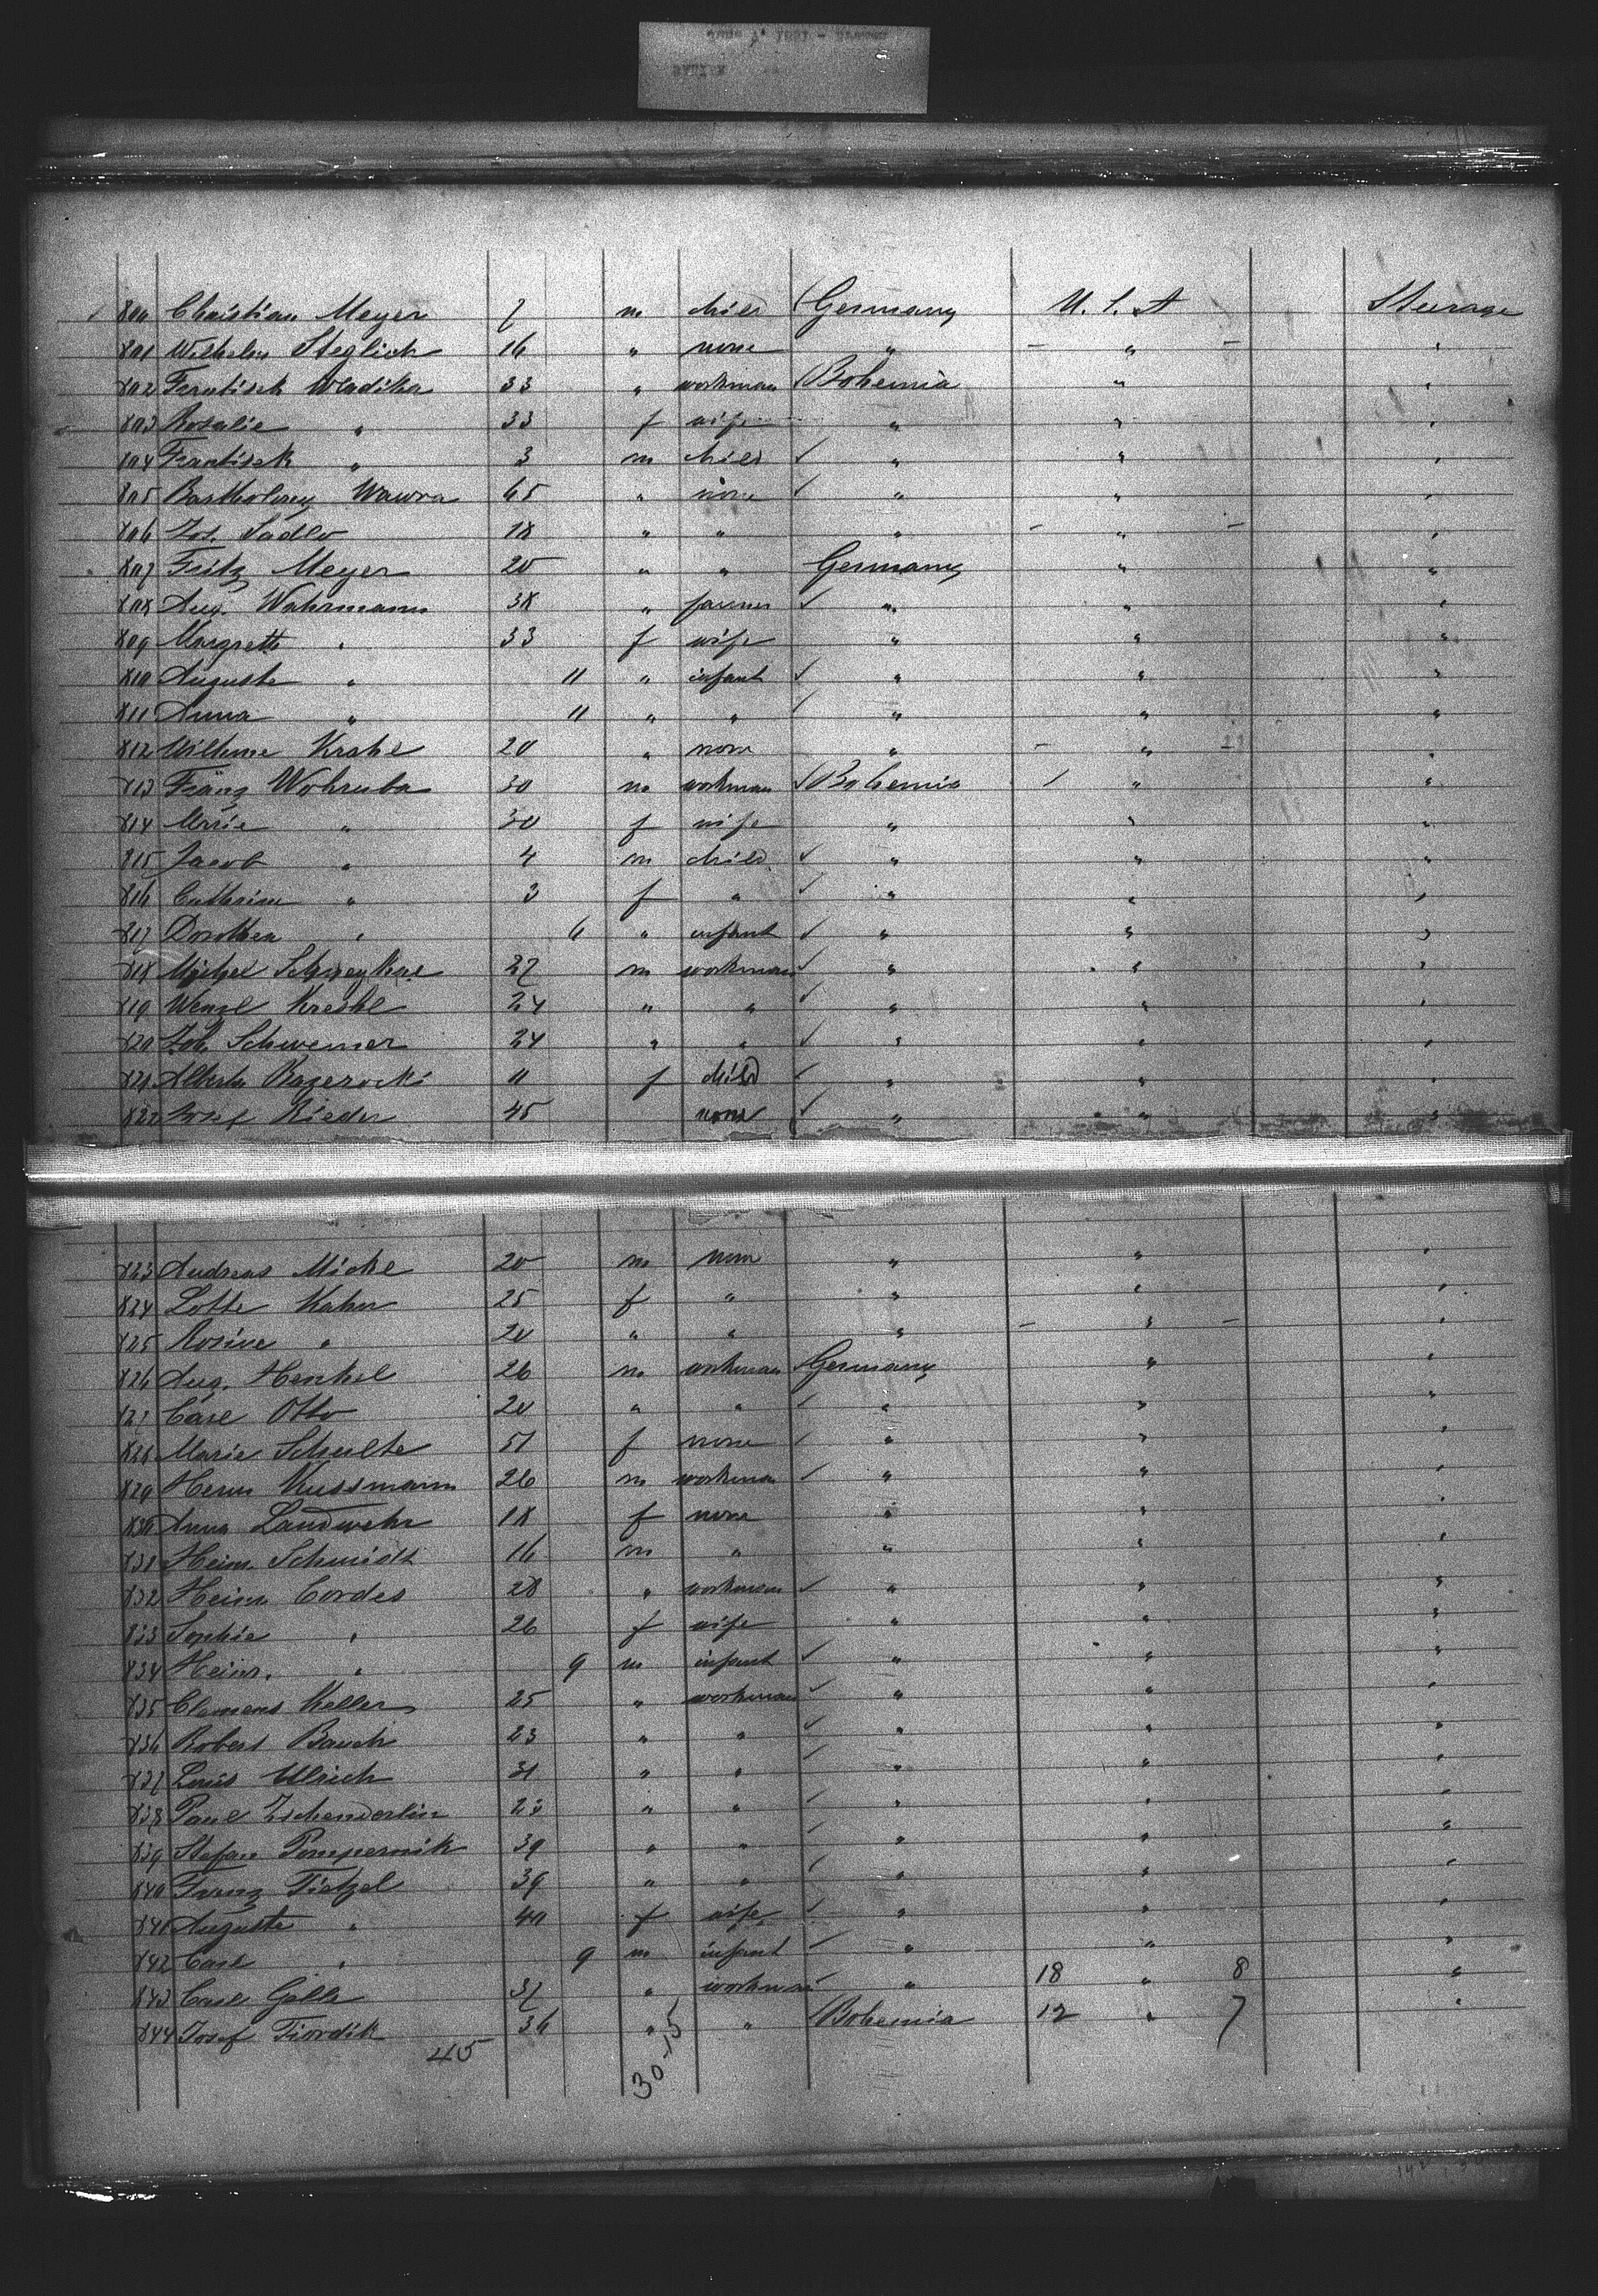 800 Christian Meyer 7 m child Germany U. S. A Steerage
801 Wilhelm Steglich 16 " none " - " - "
802 Frantisek Wladika 33 " workman Bohemia " "
803 Rosalie " 33 f wife " " "
804 Frantisek " 3 m child " " "
805 Wawra 65 " none " " "
806 Jos. Sadlo 18 " " " - " - "
807 Fritz Meyer 20 " " Germany " "
808 Aug. Wahrmann 38 " farmer " " "
809 Margrette " 33 f wife " " "
810 Auguste " 11 " infant " " "
811 Anna " 11 " " " " "
812 Krahl 20 " none " - " "
813 Franz Wohruba 30 m workman Bohemia / " "
814 Marie " 30 f wife " " "
815 Jacob " 4 m child " " "
816 " 3 f " " " "
817 Dorothea " 6 " infant " " "
818 27 m workman " " "
819 Wenzl 24 " " " " "
820 Joh. Schwemer 24 " " " " "
821 11 f child " " "
822 Josef Rieder 45 none " " "
823 Andreas Michl 20 m none " " "
824 Lotte Kahn 25 f " " " "
825 Rosine " 20 " " " - " - "
826 Aug. Henkel 26 m workman Germany " "
827 Carl Otto 20 " " " " "
828 Marie Schulte 51 f none " " "
829 Herm Kussmann 26 m workman " " "
830 Anna Landwehr 18 f none " " "
831 Heinr. Schmidt 16 m " " " "
832 Heinr Cordes 28 " workman " " "
833 Sophie " 26 f wife " " "
834 Heinr. " 9 m infant " " "
835 Clemens Keller 25 " workman " " "
836 Robert Bauch 23 " " " " "
837 Louis Ullrich 31 " " " " "
838 Paul Zschenderlin 23 " " " " "
839 Stefan Pompernik 39 " " " " "
840 Franz Tietzel 39 " " " " "
841 Auguste " 40 f wife " " "
842 Carl " 9 m infant " " "
843 Carl Golle 37 " workman " 18 " 8 "
844 Josef Tiordik 36 " " Bohemia 12 " 7 "
45 30-15